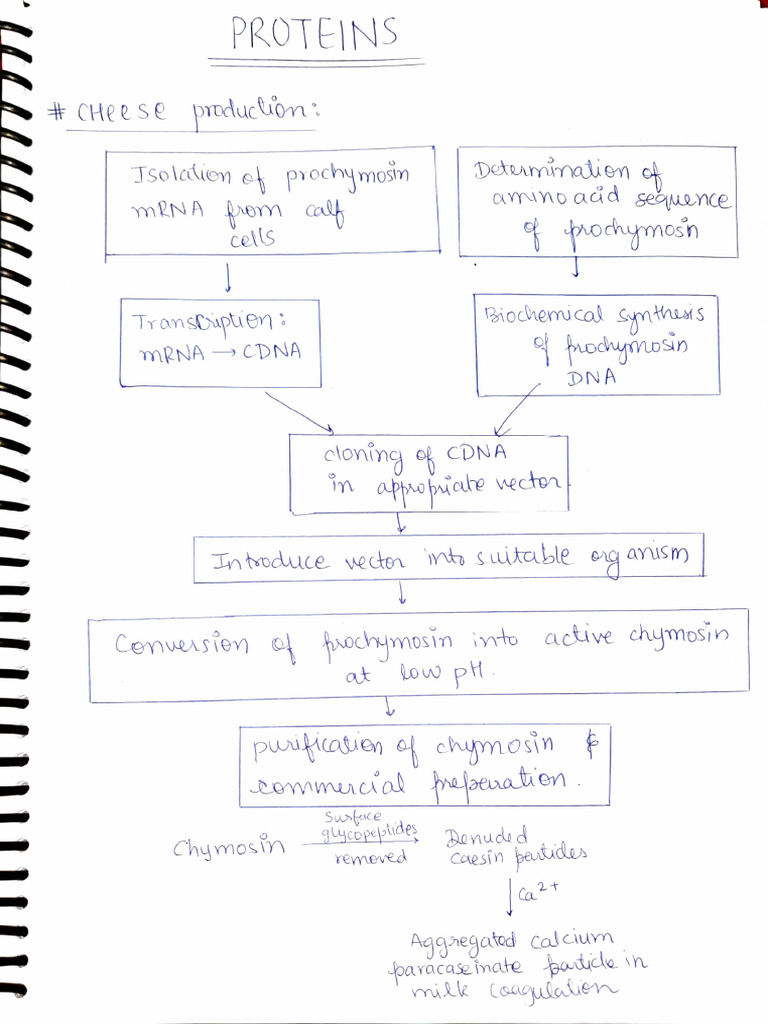 PROTEINS
# CHeese production:
Isolation of prochymosin
mRNA from calf
cells
Determination of
amino acid sequence
of prochymosin
Transcription:
mRNA → CDNA
Biochemical synthesis
of prochymosin
DNA
cloning of CDNA
in appropriate vector
Introduce vector into suitable organism
Conversion of prochymosin into active chymosin
at low pH.
purification of chymosin &
commercial preperation.
Chymosin
Surface
glycopeptides
removed
Denuded
caesin particles
Ca2+
Aggregated calcium
paracaseinate particle in
milk coagulation